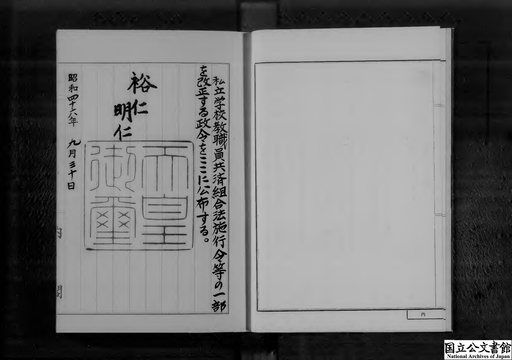 私立学校教職員共済組合法施行令等の一部
を改正する政令をここに公布する。
裕仁
明仁
天皇
御璽
昭和四十六年 九月三十日
国立公文書館
National Archives of Japan